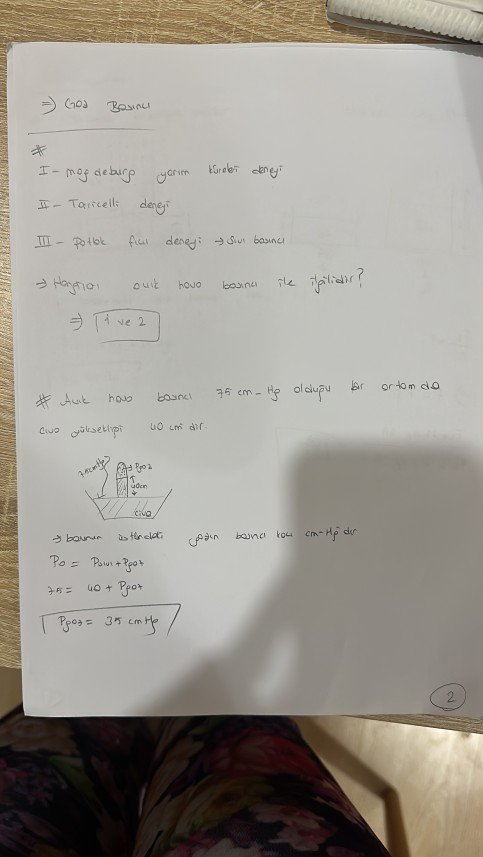 =) Gaz Basıncı
#
I - magdeburg yarım küreleri deneyi
II - Toricelli deneyi
III - Patlak fıçı deneyi → Sıvı basıncı
→ Hangileri açık hava basıncı ile ilgilidir?
⇒ 1 ve 2
# Açık hava basıncı 75 cm-Hg olduğu bir ortamda
civa yüksekliği 40 cm dir.
75 cmHg
Pgaz
40cm
civa
→ borunun üstündeki gazın basıncı kaç cm-Hg dır
Po = Psıvı + Pgaz
75 = 40 + Pgaz
Pgaz = 35 cmHg
2